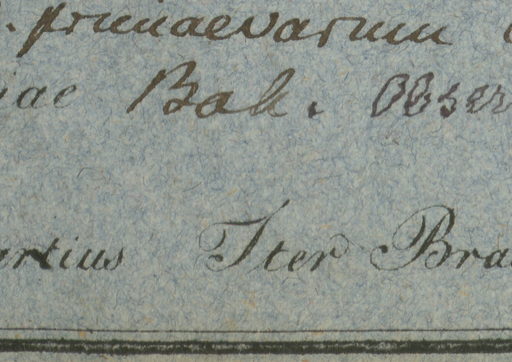 . primaevarum
iae Bah. Obser
artius Iter Bra